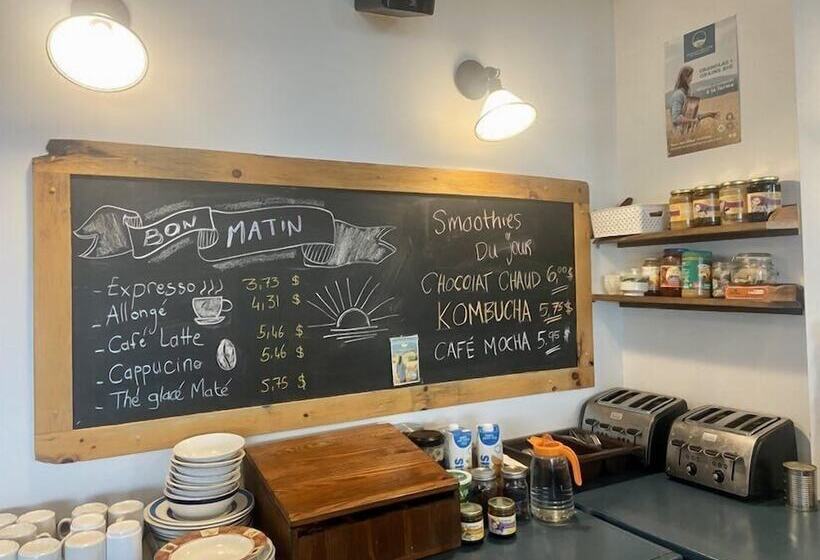 BON MATIN
- Expresso 3,73 $
- Allongé 4,31 $
- Café Latte 5,46 $
- Cappucino 5,46 $
- Thé glacé Maté 5,75 $
Smoothies
Du jour
CHOCOLAT CHAUD 6,00 $
KOMBUCHA 5,75 $
CAFÉ MOCHA 5.95 $
GRANOLAS &
GRAINS BIO
à la ferme